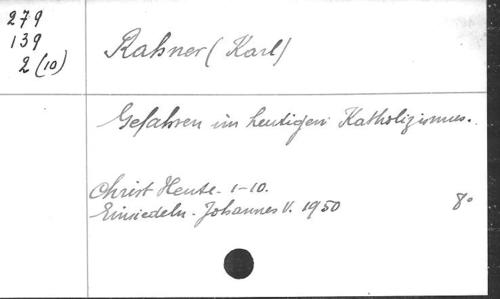 279
139
2 (10)
Rahner (Karl)
Gefahren im heutigen Katholizismus.
Christ Heute. 1-10.
Einsiedeln. Johannes V. 1950
8°